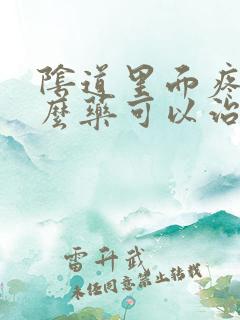 陰道里面疼
麼藥可以治
雷升武
未经同意禁止转载